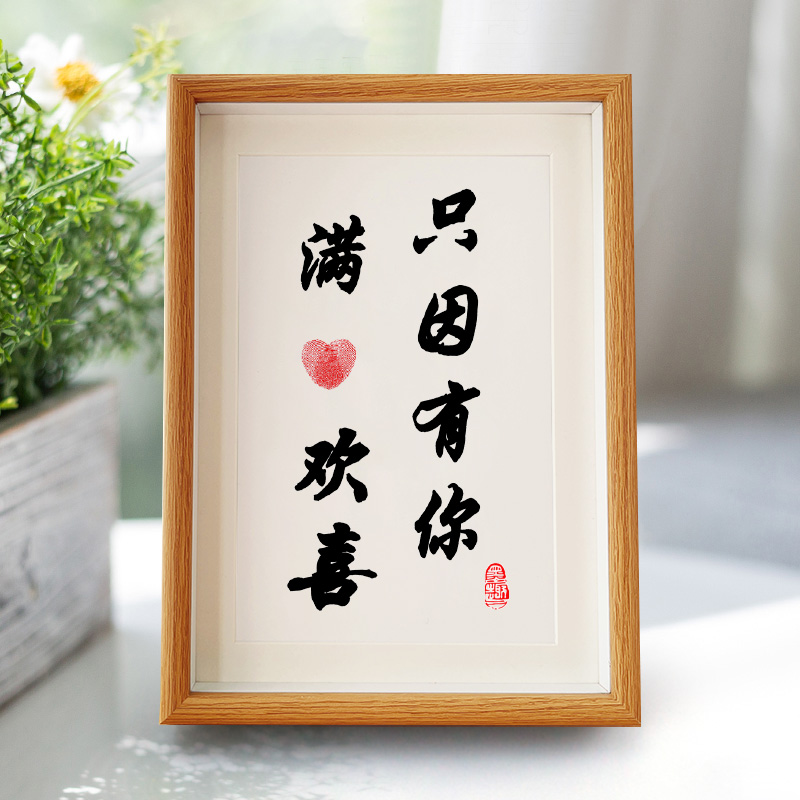 只因有你
满欢喜